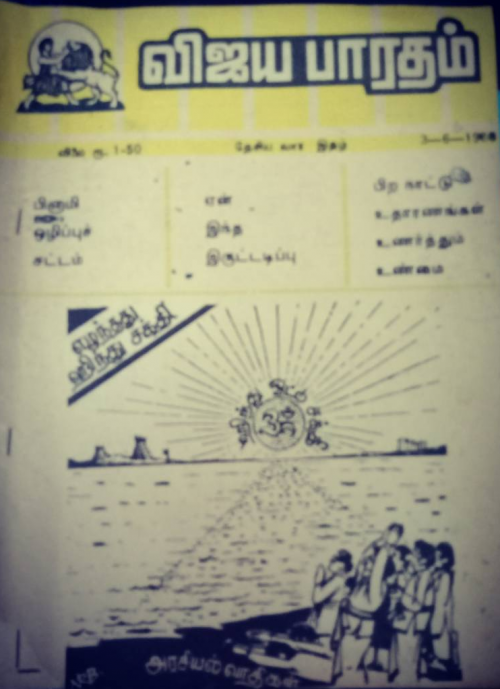 விஜய பாரதம்
விலை ரூ. 1-50 தேசிய வார இதழ் 3-6-1988
பினாமி
ஒழிப்புச்
சட்டம்
ஏன்
இந்த
இருட்டடிப்பு
பிற நாட்டு
உதாரணங்கள்
உணர்த்தும்
உண்மை
எழுந்தது
ஹிந்து சக்தி
ஹிந்து ஓட்டு சக்தி
ॐ
அரசியல்வாதிகள்